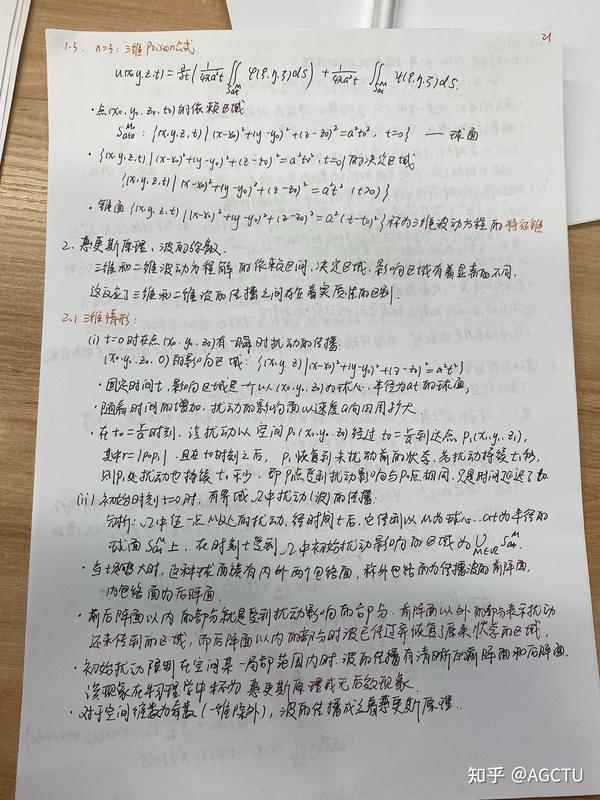 21
1.3. n=3: 三维Poisson公式
u(x,y,z,t) = ∂/∂t( 1/(4πa²t) ∬_{S_{at}^M} φ(ξ,η,ζ)dS ) + 1/(4πa²t) ∬_{S_{at}^M} ψ(ξ,η,ζ)dS.
· 点(x₀,y₀,z₀,t₀)的依赖区域
S_{at₀}^{M₀}: {(x,y,z,t) | (x-x₀)²+(y-y₀)²+(z-z₀)²=a²t₀², t=0} — 球面
· {(x,y,z,t) | (x-x₀)²+(y-y₀)²+(z-z₀)²=a²t₀², t=0}的决定区域
{(x,y,z,t) | (x-x₀)²+(y-y₀)²+(z-z₀)²=a²t² (t>0)}
· 锥面{(x,y,z,t) | (x-x₀)²+(y-y₀)²+(z-z₀)²=a²(t-t₀)²}称为三维波动方程的特征锥
2. 惠更斯原理、波的弥散.
三维和二维波动方程解的依赖区间、决定区域、影响区域有着显著的不同.
这反应了三维和二维波的传播之间存在着实质性的区别.
2.1 三维情形:
(i) t=0时在点(x₀,y₀,z₀)有一瞬时扰动的传播.
(x₀,y₀,z₀,0)的影响区域: {(x,y,z) | (x-x₀)²+(y-y₀)²+(z-z₀)²=a²t²}
· 固定时间t, 影响区域是一个以(x₀,y₀,z₀)为球心, 半径为at的球面,
· 随着时间的增加, 扰动的影响面以速度a向四周扩大.
· 在t₀=r/a时刻, 该扰动从空间P₀(x₀,y₀,z₀)经过t₀=r/a到达点P₁(x₁,y₁,z₁),
其中r=|P₀P₁|. 且在t₀时刻之后, P₁恢复到未扰动前的状态, 若扰动持续t₁秒,
则P₁处扰动也持续t₁秒, 即P₁点受到扰动影响与P₀点相同, 只是时间延迟了t₀.
(ii) 初始时刻t=0时, 有界域Ω中扰动(波)的传播.
分析: Ω中任一点M处的扰动, 经时间t后, 它传到以M为球心, at为半径的
球面S_{at}^M上, 在时刻t受到Ω中初始扰动影响的区域为⋃_{M∈Ω} S_{at}^M.
· 当t足够大时, 这种球面族有内外两个包络面, 称外包络面为传播波的前阵面,
内包络面为后阵面.
· 前后阵面以内的部分就是受到扰动影响的部分. 前阵面以外的部分表示扰动
还未传到的区域, 而后阵面以内的部分时波已传过并恢复了原来状态的区域.
· 初始扰动限制在空间某一局部范围内时, 波的传播有清晰的前阵面和后阵面.
该现象在物理学中称为惠更斯原理或无后效现象.
· 对于空间维数为奇数(一维除外), 波的传播成立着惠更斯原理.
知乎 @AGCTU